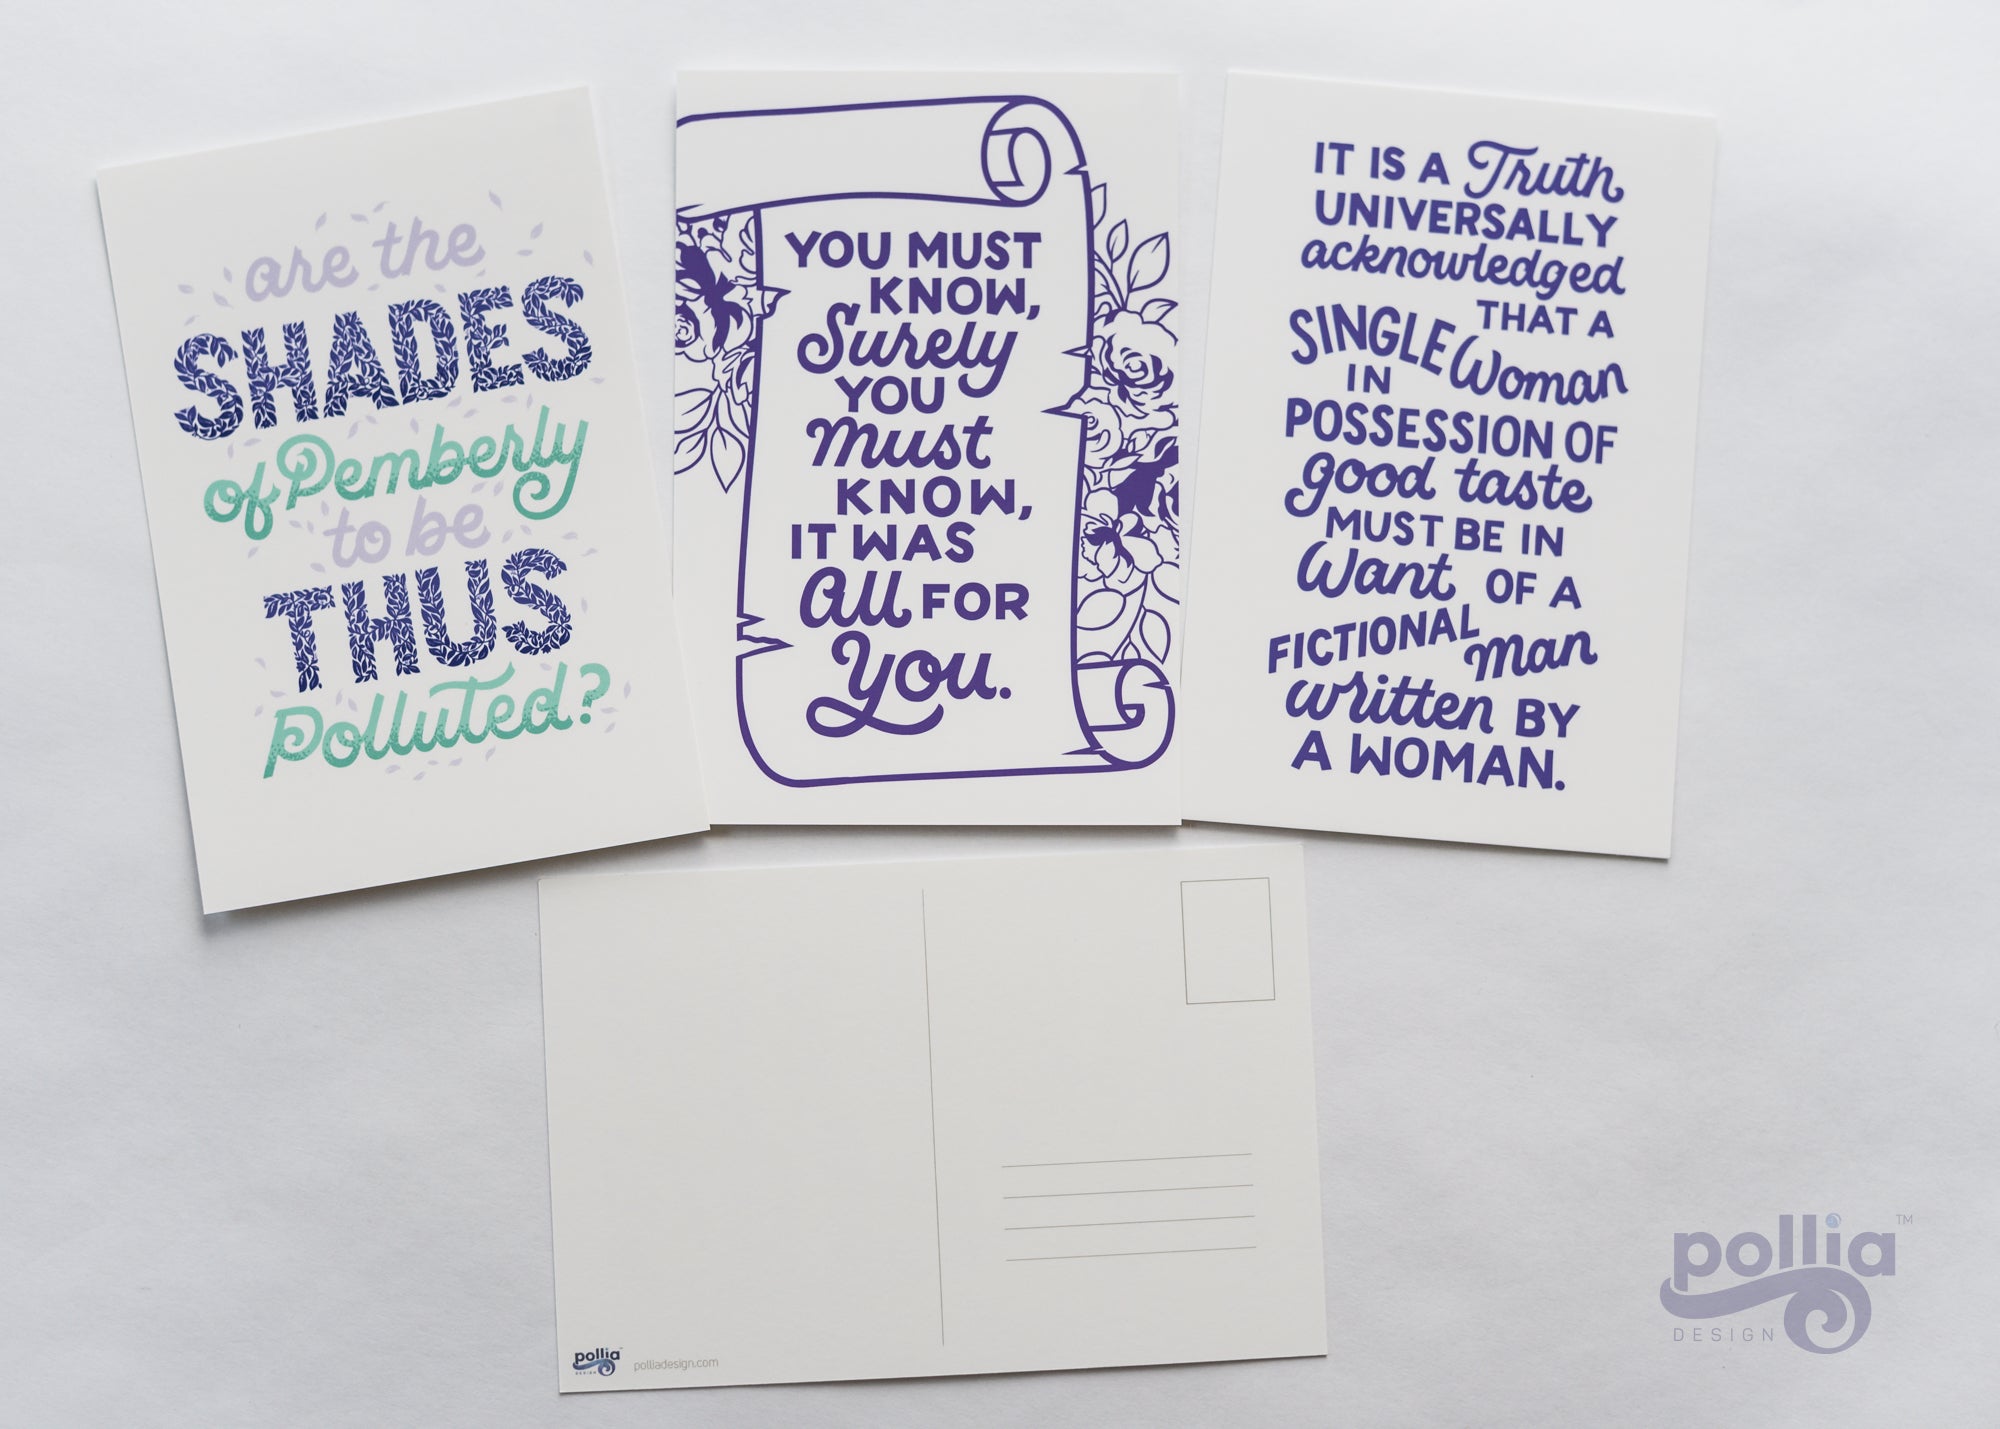 are the
SHADES
of Pemberly
to be
THUS
polluted?
YOU MUST
KNOW,
Surely
YOU
must
KNOW,
IT WAS
All FOR
You.
IT IS A Truth
UNIVERSALLY
acknowledged
THAT A
SINGLE Woman
IN
POSSESSION OF
good taste
MUST BE IN
Want OF A
FICTIONAL man
written BY
A WOMAN.
pollia™
DESIGN
polliadesign.com
pollia™
DESIGN